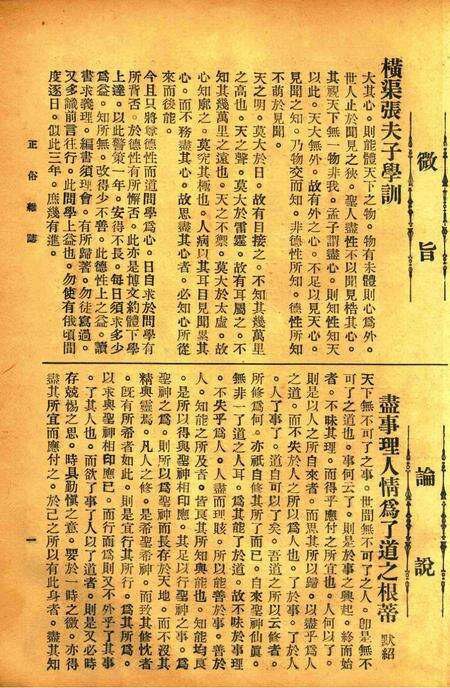 微旨
橫渠張夫子學訓
大其心。則能體天下之物。物有未體則心爲外。
世人止於聞見之狹。聖人盡性不以聞見梏其心。
其視天下無一物非我。孟子謂盡心。則知性知天
以此。天大無外。故有外之心。不足以見天心。
見聞之知。乃物交而知。非德性所知。德性所知
不萌於見聞。
天之明。莫大於日。故有目接之。不知其幾萬里
之高也。天之聲。莫大於雷霆。故有耳屬之。不
知其幾萬里之遠也。天之不禦。莫大於太虛。故
心知廓之。莫究其極也。人病以其耳目見聞累其
心。而不務盡其心。故思盡其心者。必知心所從
來而後能。
今且只將尊德性而道問學爲心。日自求於問學有
所背否。於德性有所懈否。此亦是博文約體下學
上達。以此警策一年。安得不長。每日須求多少
爲益。知所無。改得少不善。此德性上之益。讀
書求義理。編書須理會。有所歸著。勿徒寫過。
又多識前言往行。此問學上益也。勿使有俄頃間
度逐日。似此三年。庶幾有進。
論說
盡事理人情爲了道之根蒂
默紹
天下無不可了之事。世間無不可了之人。卽是無不
可了之道也。事何云了。則是於事之興起。終而始
者。不昧其理。而得乎應付之所宜也。人何以了。
則是以人之所自來者。而思其所以歸。以盡乎爲人
之道。而不失於人之所以爲人也。了於事。了於人
。人了事了。道自可以了矣。吾道之所以云修者。
所修爲何。亦祇自修其所了而已。自來聖神仙眞。
無非一了道之人耳。爲其能了於道。故不昧於事理
。不失乎爲人。人盡而理晐。所以能善於事。善於
人。知能之所及者。皆良其所知與能也。知能均良
。是所以得與聖神相印應。其足以行聖神之事。爲
聖神之爲。則所以爲聖神而長存於天地。而不沒其
精與靈焉。凡人之修。是希聖希神。而致其修忱者
。旣有所希者如此。則是宜行其所行。爲其所爲。
以求與聖神相印應已。而行而爲則又不外乎了其事
。了其人也。而欲了事了人以了道者。則是又必時
存兢惕之思。時具勤愼之意。要於一時之徼。亦得
盡其所宜而應付之。於己之所以有此身者。盡其知
正俗雜誌
一